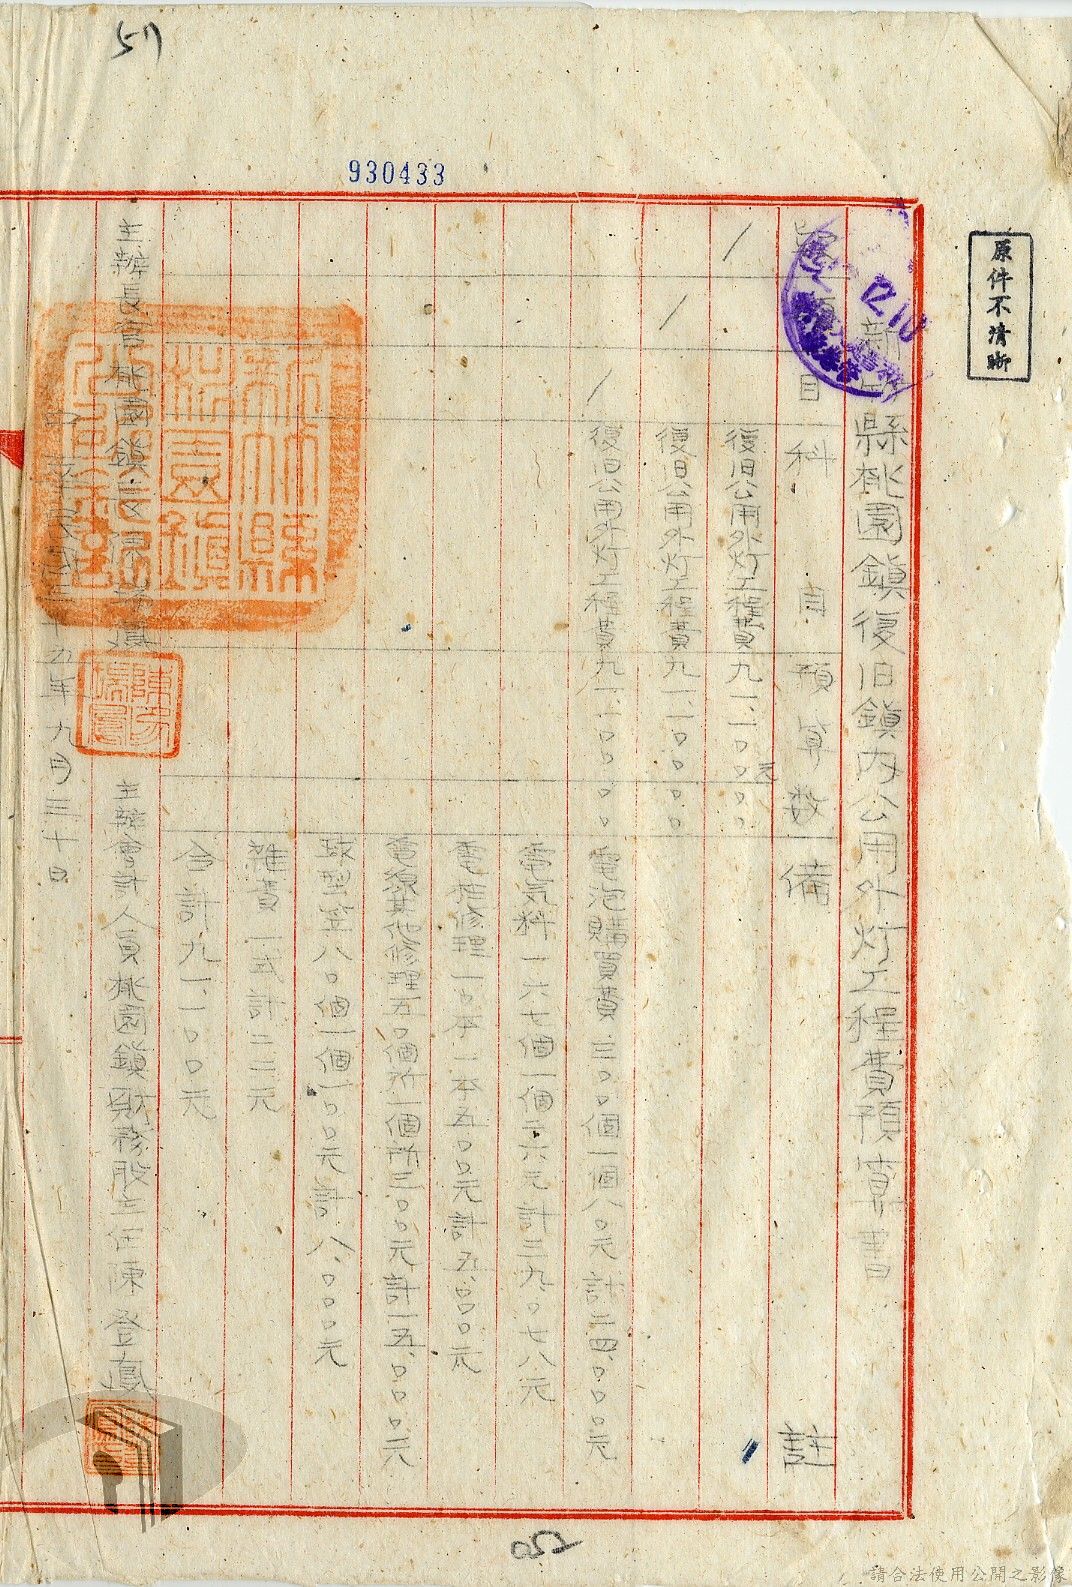 51
930433
原件不清晰
12.10
新竹縣桃園鎮復旧鎮內公用外灯工程費預算書
款項目 科目 預算数 備註
1 復旧公用外灯工程費 九一、一〇〇元〇〇
1 復旧公用外灯工程費 九一、一〇〇〇〇
1 復旧公用外灯工程費 九一、一〇〇〇〇 電泡購買費 三〇〇個一個八〇元 計二四、〇〇〇元
電気料 一六七個一個 計三九、〇七八元
電柱修理 一〇本一本五〇〇元計五、〇〇〇元
電線其他修理五〇個所一個所三〇〇元計一五、〇〇〇元
八〇個一個一〇〇元計八、〇〇〇元
雜費一式計二二元
合計九一、一〇〇元
主辦長官桃園鎮長 主辦會計人員桃園鎮財務股主任陳登鳳
九年九月三十日
新竹縣桃園鎮
052
請合法使用公開之影像